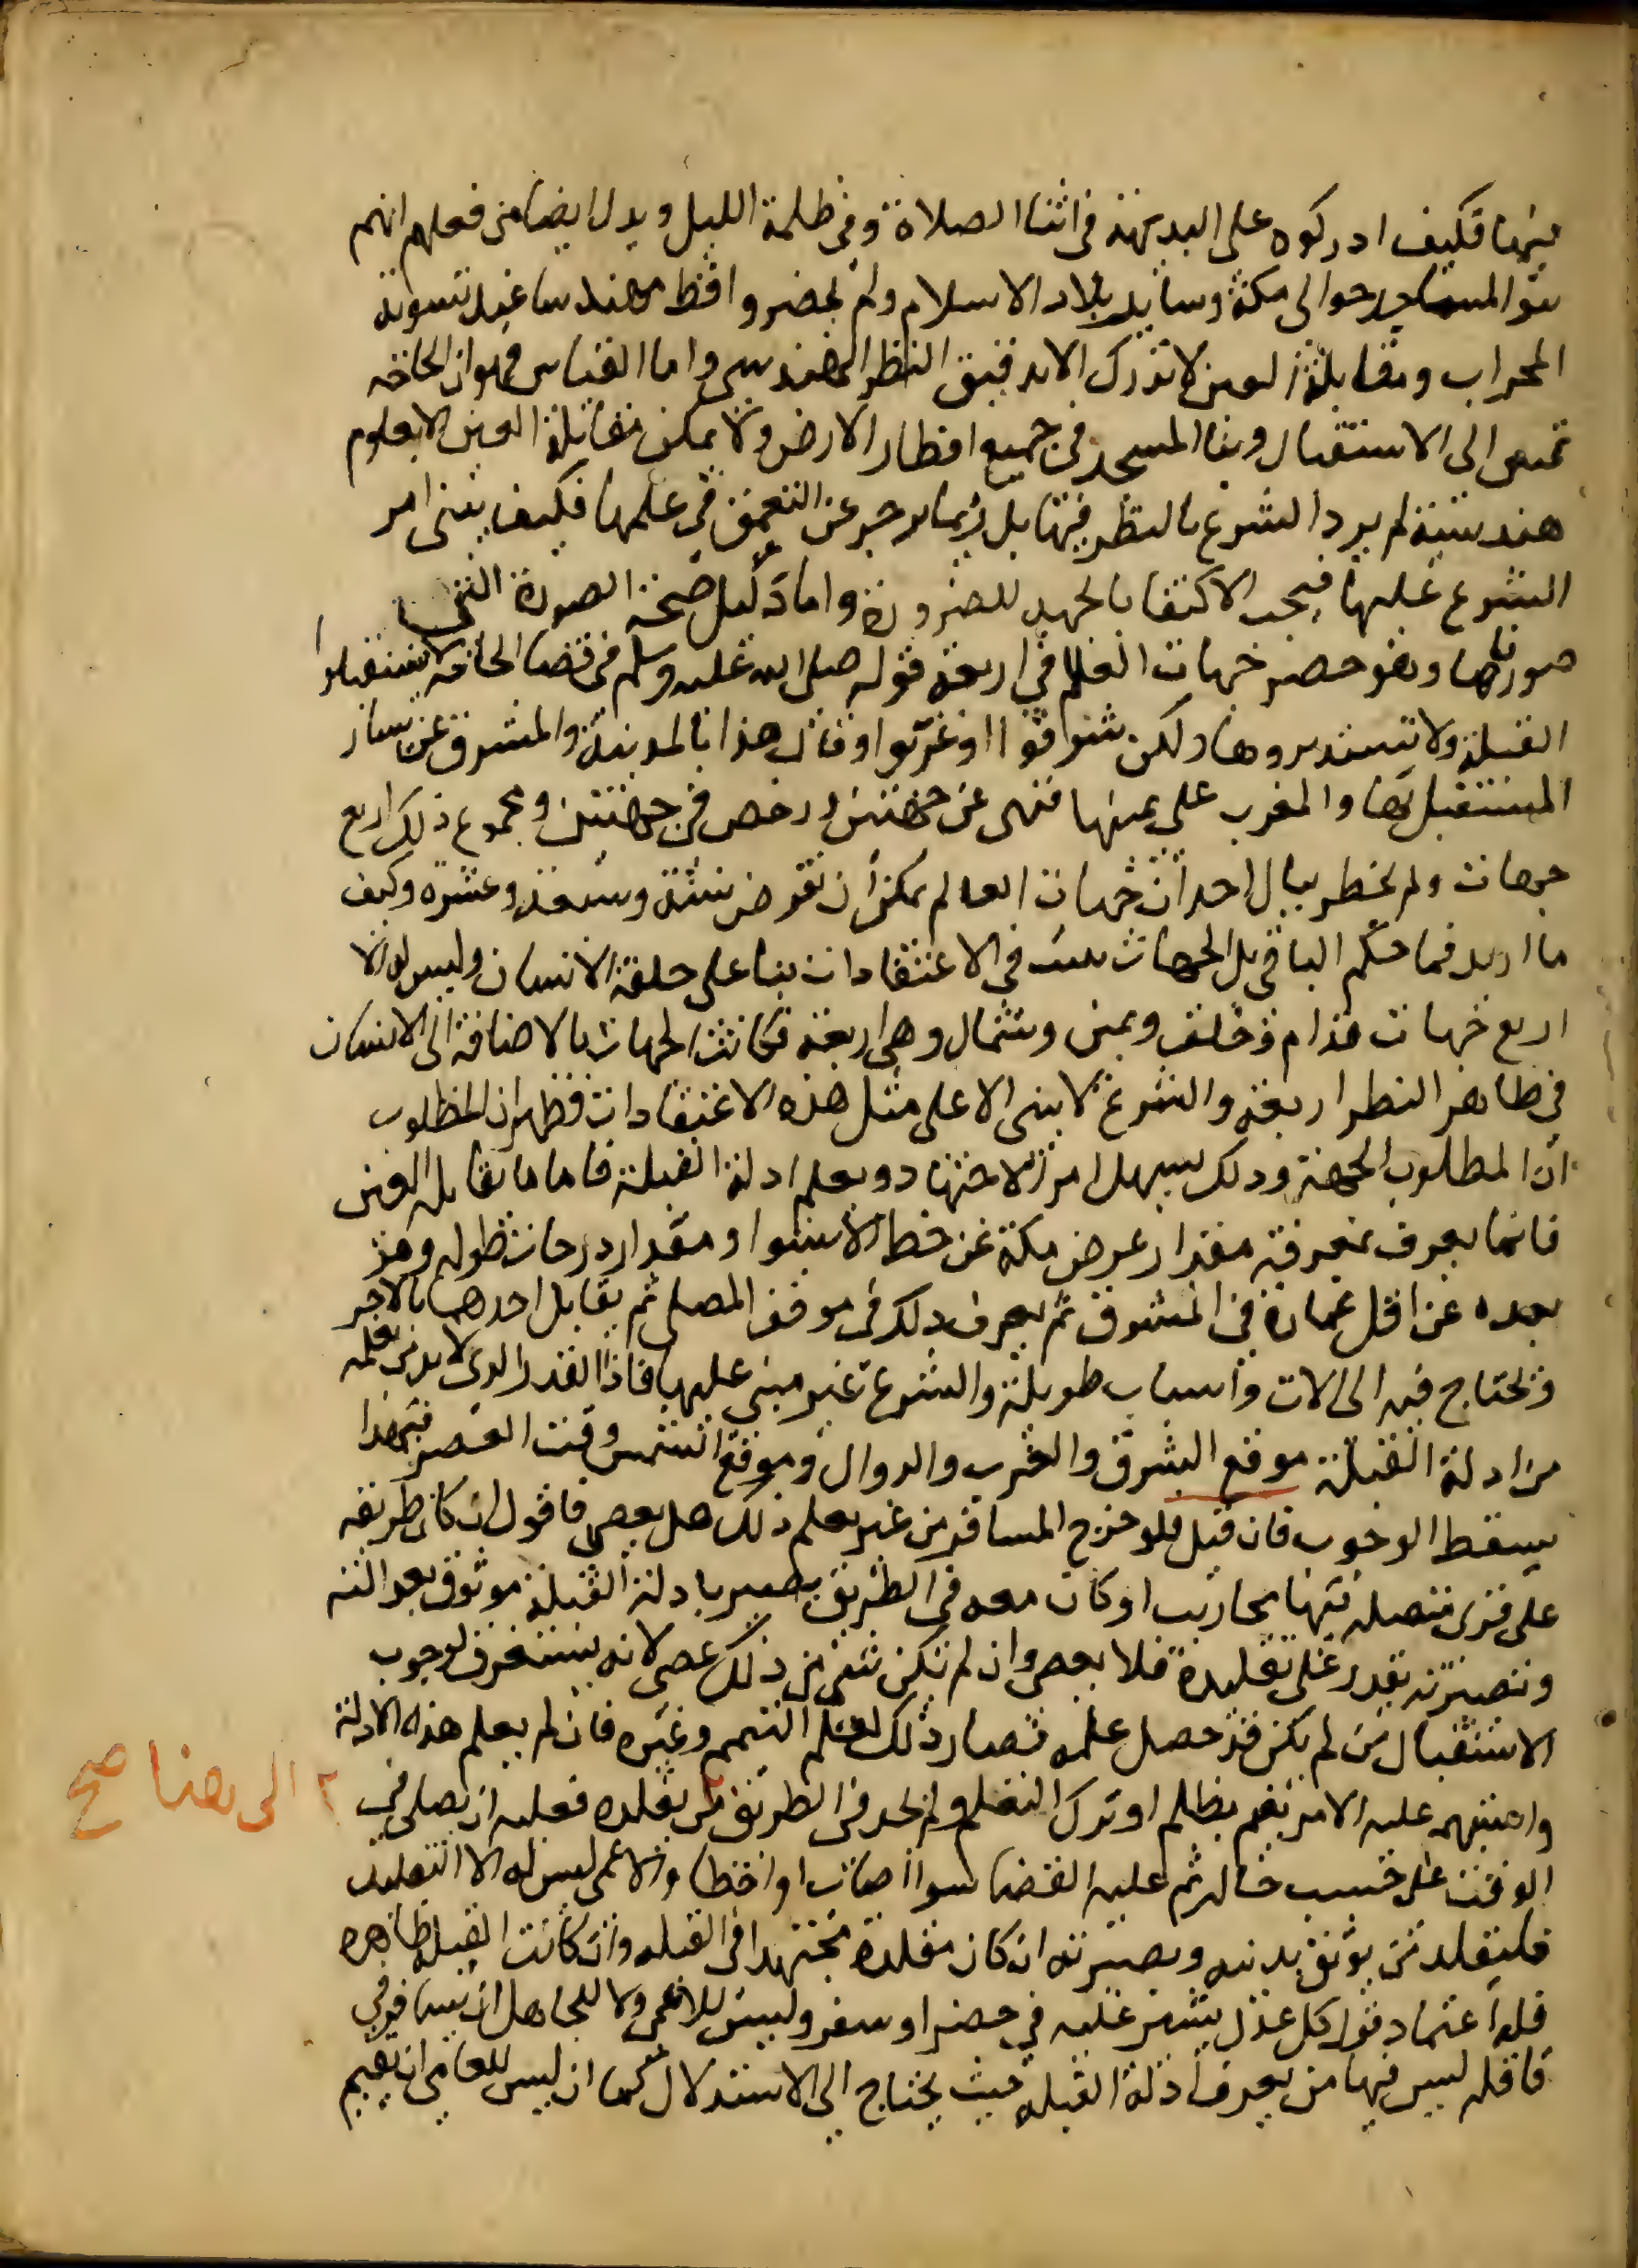 فيها فكيف ادركوه على البديهة في اثنا الصلاة وفي ظلمة الليل ويدل ايضا من فعلهم انهم
بنوا المساجد حوالى مكة وساير بلاد الاسلام ولم يحضروا قط مهندسا عند تسوية
المحراب ومقابلة العين لا تدرك الا بدقيق النظر الهندسي واما القياس فهو ان الحاجة
تمس الى الاستقبال وبنا المسجد في جميع اقطار الارض ولا يمكن مقابلة العين الا بعلوم
هندسية لم يرد الشرع بالنظر فيها بل ربما يزجر عن التعمق في علمها فكيف يبنى امر
الشرع عليها فيجب الاكتفا بالجهة للضرورة واما دليل صحة الصورة التي
صورناها وهو حصر جهات العالم في اربعة قوله صلى الله عليه وسلم في قضا الحاجة لا تستقبلوا
القبلة ولا تستدبروها ولكن شرقوا او غربوا وقال هذا بالمدينة والمشرق عن يسار
المستقبل بها والمغرب على يمينها فنهى عن جهتين ورخص في جهتين ومجموع ذلك اربع
جهات ولم يخطر ببال احد ان جهات العالم يمكن ان تفرض ستة وسبعة وعشرة وكيف
ما اريد فما حكم الباقي بل الجهات تثبت في الاعتقادات بنا على خلقة الانسان وليس له الا
اربع جهات قدام وخلف ويمين وشمال وهي اربعة فكانت الجهات بالاضافة الى الانسان
في ظاهر النظر اربعة والشرع لا يبنى الا على مثل هذه الاعتقادات فظهر ان المطلوب
ان المطلوب الجهة وذلك يسهل امر الاجتهاد ويعلم ادلة القبلة فاما مقابلة العين
فانما يعرف بمعرفة مقدار عرض مكة عن خط الاستوا ومقدار درجات طولها وهو
بعده عن اقل عمارة في المشرق ثم يعرف ذلك في موقف المصلي ثم يقابل احدهما بالاخر
ويحتاج فيه الى الات واسباب طويلة والشرع غير مبني عليها فاذا القدر الذي لا بد من تعلمه
من ادلة القبلة موقع الشرق والغرب والزوال وموقع الشمس وقت العصر فبهذا
يسقط الوجوب فان قيل فلو خرج المسافر من غير تعلم ذلك هل يعصي فاقول ان كان طريقه
على قرى متصلة فيها محاريب او كان معه في الطريق بصير بادلة القبلة موثوق بعدالته
وبصيرته يقدر على تقليده فلا يعصي وان لم يكن شي من ذلك عصى لانه يستعرف لوجوب
الاستقبال من لم يكن قد حصل علمه فصار ذلك لعلم التيمم وغيره فان لم يعلم هذه الادلة
واستبهم عليه الامر بغيم مظلم او ترك التعلم ولم يجد في الطريق من يقلده فعليه ان يصلي في
الوقت على حسب حاله ثم عليه القضا سوا اصاب او اخطا والاعمى ليس له الا التقليد
فليقلد من يوثق بدينه وبصيرته ان كان مقلده مجتهدا في القبلة وان كانت القبلة ظاهرة
فله اعتماد قول كل عدل يخبر عليه في حضر او سفر وليس للاعمى ولا للجاهل ان يسافر في
قافلة ليس فيها من يعرف ادلة القبلة حيث يحتاج الى الاستدلال كما ان ليس للعامي ان يقيم
الى هنا صح